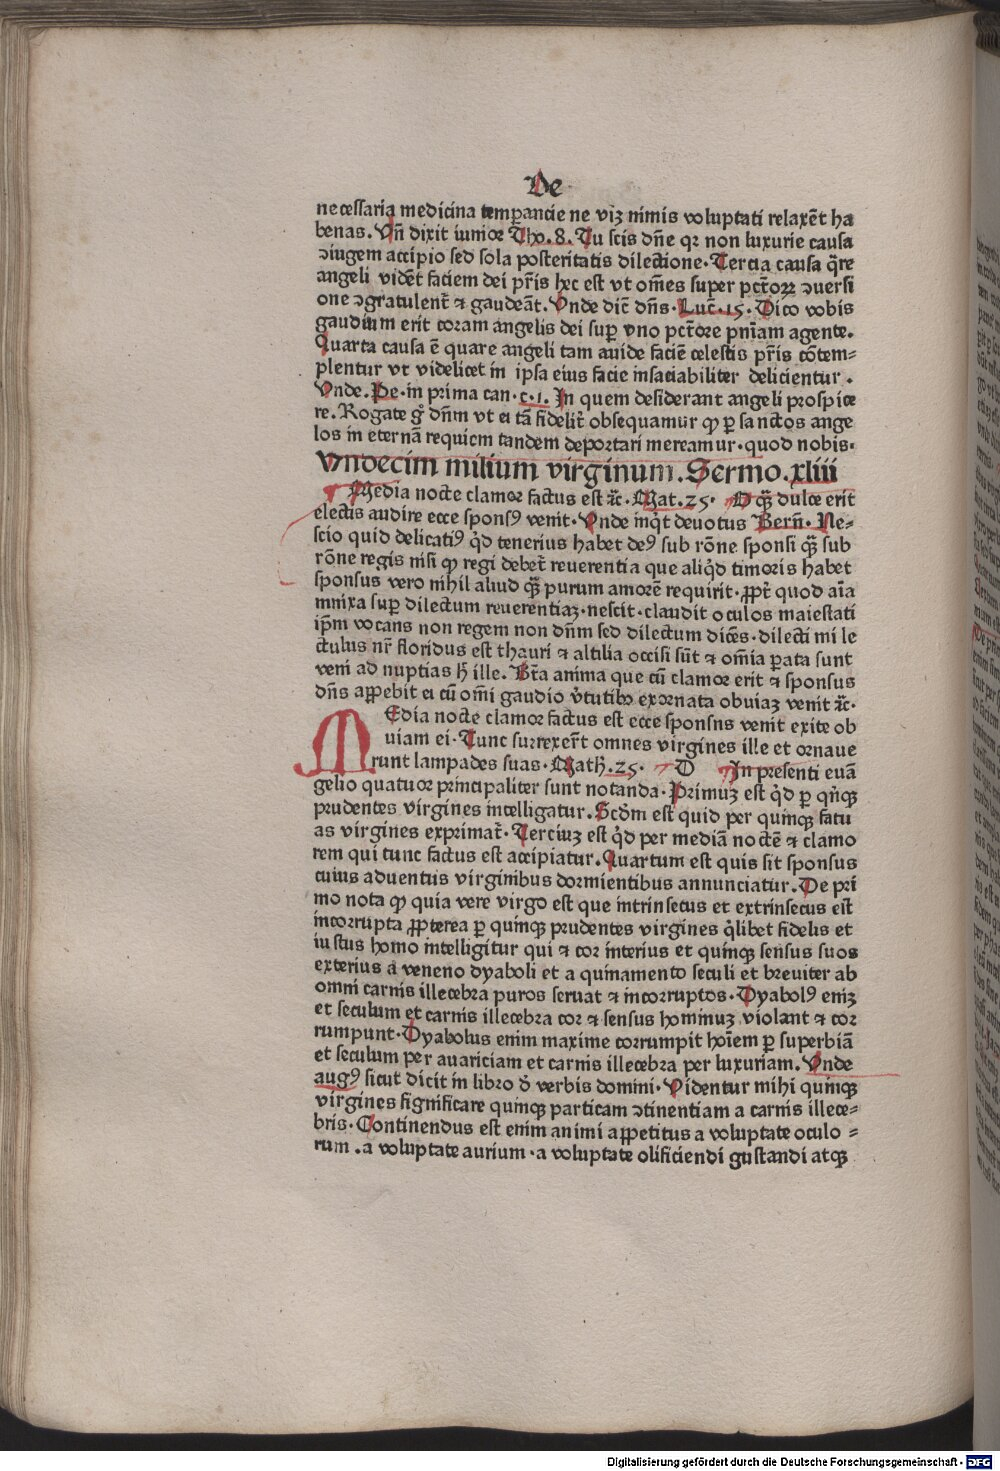 De
necessaria medicina temꝑancie ne viꝫ nimis voluptati relaxēt ha
benas. Vn̄ dixit iunior Tho. 8. Tu scis dn̄e qꝛ non luxurie causa
ↄiugem accipio sed sola posteritatis dilectione. Tercia causa q̄re
angeli vidēt faciem dei pr̄is hec est vt om̄es super pct̄oꝝ ↄuersi
one ↄgratulent̄ ⁊ gaudeāt. Vnde dic̄ dn̄s. Luc̄. 15. Dico vobis
gaudium erit coram angelis dei suꝑ vno pct̄ore pn̄iam agente.
Quarta causa ē quare angeli tam auide faciē celestis pr̄is cōtem⸗
plentur vt videlicet in ipsa eius facie insaciabiliter delicientur.
Vnde. Pe. in prima can. c. 1. In quem desiderant angeli prospice
re. Rogate gͦ dn̄m vt ei tā fidelit̄ obsequamur ꝙ ꝑ sanctos ange
los in eternā requiem tandem deportari mereamur. quod nobis.
Vndecim milium virginum. Sermo. xliii
Media nocte clamor factus est ⁊c̄. Mat. 25. O qͣꝫ dulce erit
electis audire ecce sponsꝰ venit. Vnde inq̇t deuotus Bern̄. Ne⸗
scio quid delicatiꝰ q̇d tenerius habet deꝰ sub rōne sponsi qͣꝫ sub
rōne regis nisi ꝙ regi debet̄ reuerentia que aliq̇d timoris habet
sponsus vero nihil aliud qͣꝫ purum amorē requirit. ꝓpt̄ quod aīa
innixa suꝑ dilectum reuerentiaꝫ. nescit. claudit oculos maiestati
ip̄m vocans non regem non dn̄m sed dilectum dicēs. dilecti mi le
ctulus nr̄ floridus est thauri ⁊ altilia occisi sūt ⁊ om̄ia ꝑata sunt
veni ad nuptias h̄ ille. Bt̄a anima que cū clamor erit ⁊ sponsus
dn̄s apꝑebit ei cū om̄i gaudio v̓tutibꝰ exornata obuiaꝫ venit ⁊c̄.
MEdia nocte clamor factus est ecce sponsns venit exite ob
uiam ei. Tunc surrexer̄t omnes virgines ille et ornaue
runt lampades suas. Math̄. 25. O In presenti euā
gelio quatuor principaliter sunt notanda. Primuꝫ est q̇d ꝑ qn̄qꝫ
prudentes virgines intelligatur. Scd̄m est quid per quinqꝫ fatu
as virgines exprimat̄. Terciuꝫ est q̇d per mediā noctē ⁊ clamo
rem qui tunc factus est accipiatur. Quartum est quis sit sponsus
cuius aduentus virginibus dormientibus annunciatur. De pri
mo nota ꝙ quia vere virgo est que intrinsecus et extrinsecus est
incorrupta ꝓpterea ꝑ quinqꝫ prudentes virgines q̇libet fidelis et
iustus homo intelligitur qui ⁊ cor interius et quinqꝫ sensus suos
exterius a veneno dyaboli et a quinamento seculi et breuiter ab
omni carnis illecebra puros seruat ⁊ incorruptos. Dyabolꝰ eniꝫ
et seculum et carnis illecebra cor ⁊ sensus hominuꝫ violant ⁊ cor
rumpunt. Dyabolus enim maxime corrumpit hoīem ꝑ superbiā
et seculum per auariciam et carnis illecebra per luxuriam. Vnde
augꝰ sicut dicit in libro d̓ verbis domini. Videntur mihi quinqꝫ
virgines significare quinqꝫ particam ↄtinentiam a carnis illece⸗
bris. Continendus est enim animi apꝑetitus a voluptate oculo⸗
rum. a voluptate aurium. a voluptate olificiendi gustandi atqꝫ
Digitalisierung gefördert durch die Deutsche Forschungsgemeinschaft - DFG